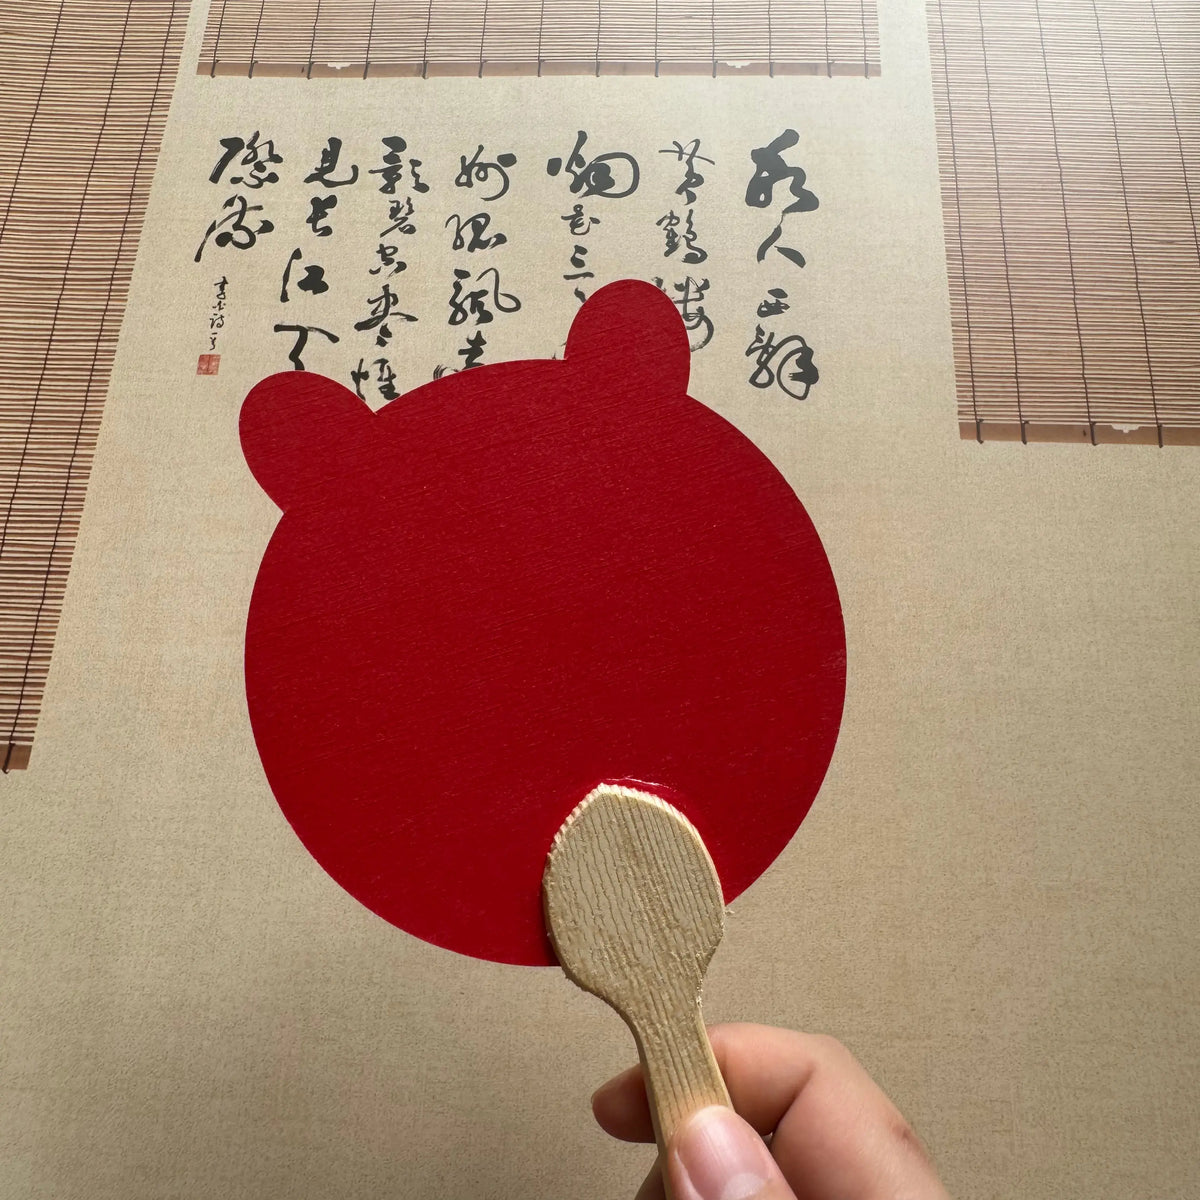 故人西辭
黄鶴樓
烟花三
州孤帆
影碧空尽惟
見長江天
際流
李白詩一首